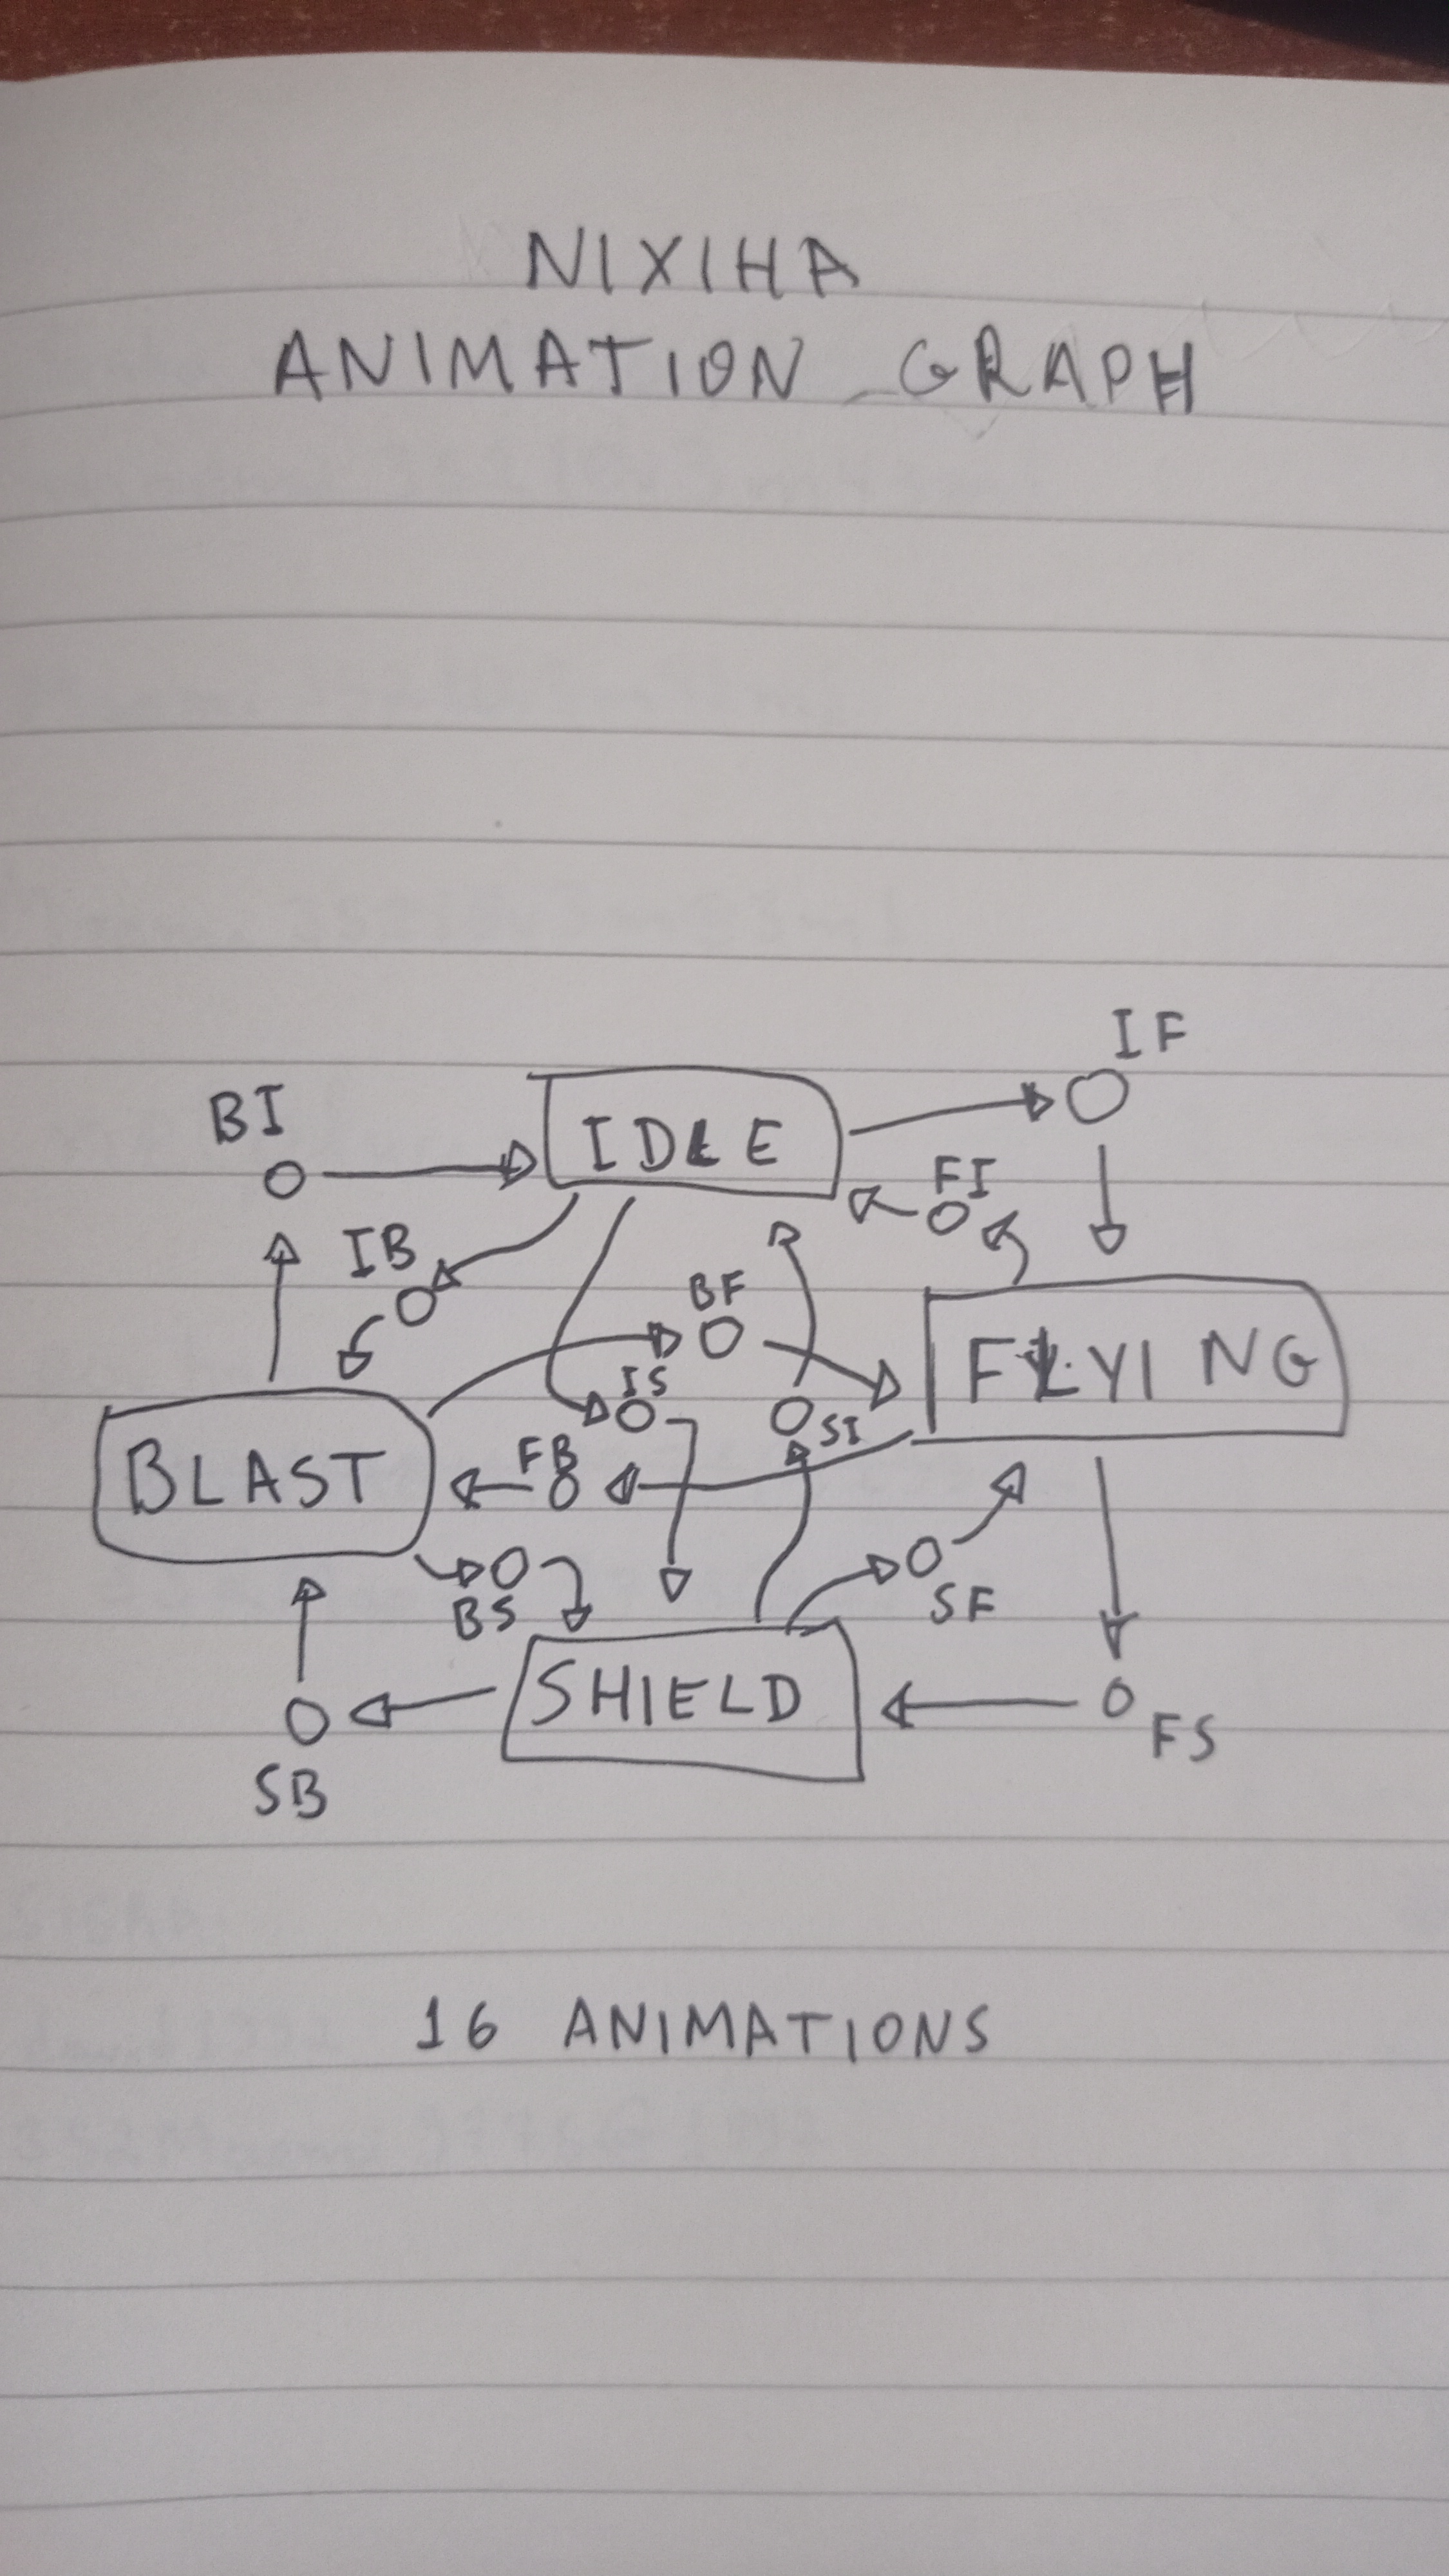 NIXIHA
ANIMATION GRAPH
IF
BI
IDLE
FI
IB
BF
FLYING
IS
SI
FB
BLAST
SF
BS
SHIELD
FS
SB
16 ANIMATIONS